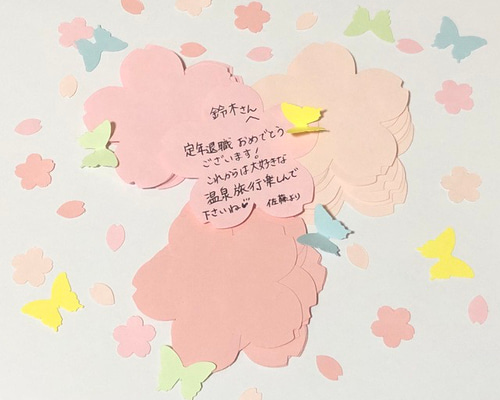 鈴木さんへ
定年退職 おめでとう
ございます!
これからは大好きな
温泉旅行楽しんで
下さいね♥
佐藤より